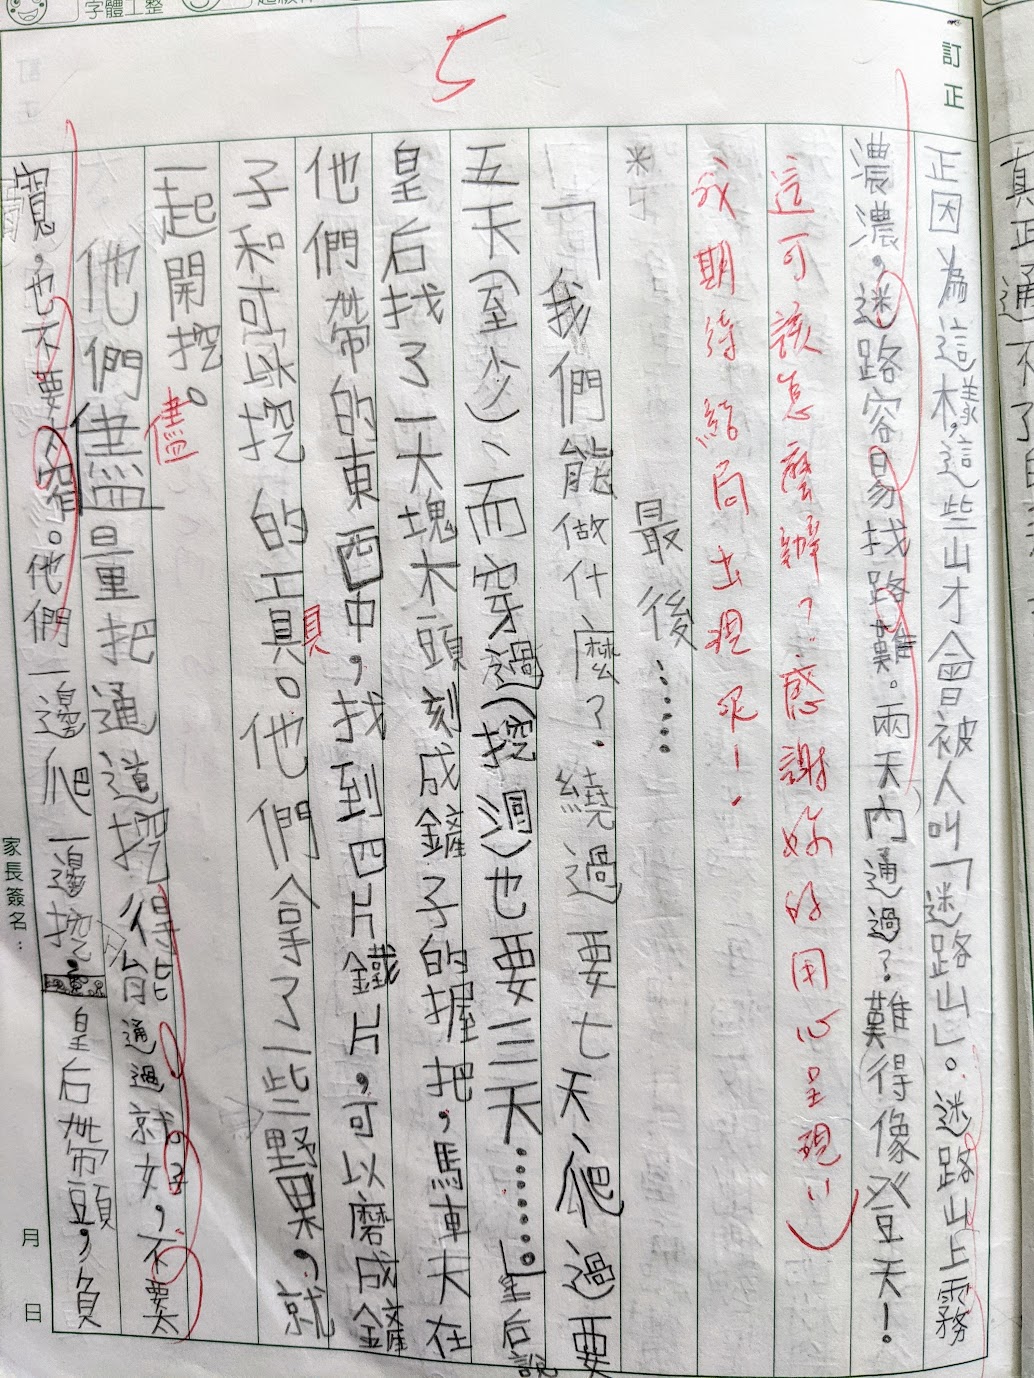 字體工整
5
訂正
正因為這樣,這些山才會被人叫「迷路山」。迷路山上霧
濃濃,迷路容易找路難。兩天內通過?難得像登天!
這可該怎麼辦?感謝妳的用心呈現
我期待結局出現呢!
最後……
「我們能做什麼?繞過要七天、爬過要
五天(至少)、而穿過(挖洞)也要三天……」皇后說
皇后找了一大塊木頭刻成鏟子的握把,馬車夫在
他們帶的東西中,找到四片鐵片,可以磨成鏟
子和可以挖的工具。他們拿了一些野果,就
具
一起開挖。
儘
他們儘量把通道挖得能通過就好,不要太
寬,也不要太窄。他們一邊爬一邊挖,皇后帶頭,負
家長簽名:
月
日